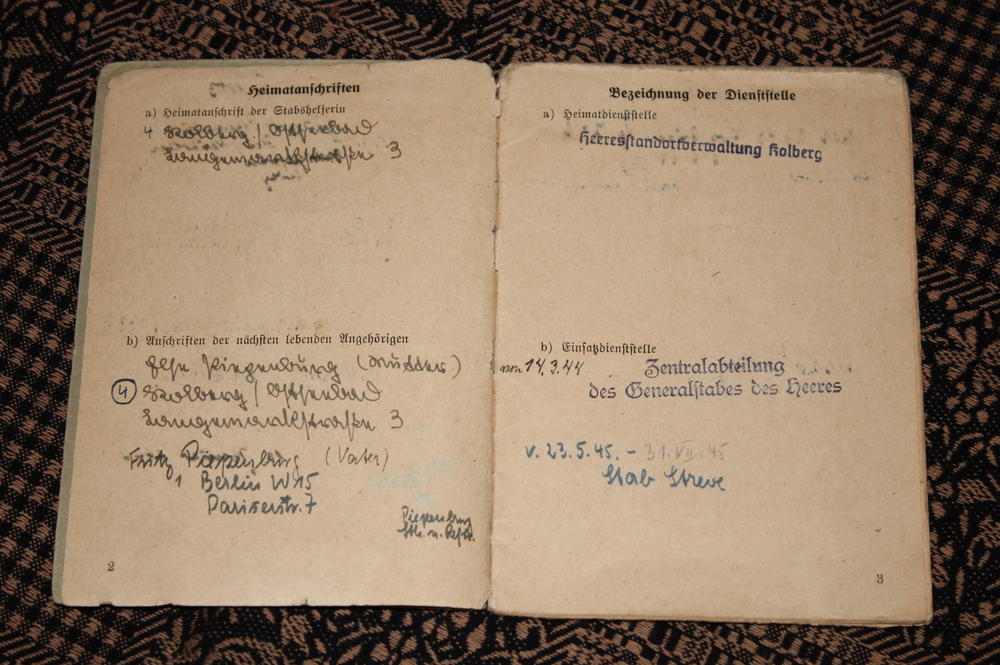 Heimatanschriften
a) Heimatanschrift der Stabshelferin
4 Kolberg / Ostseebad
3
b) Anschriften der nächsten lebenden Angehörigen
Else Piepenburg (Mutter)
4 Kolberg / Ostseebad
3
Fritz Piepenburg (Vater)
1 Berlin W 15
Pariserstr. 7
Piepenburg
2
Bezeichnung der Dienststelle
a) Heimatdienststelle
Heeresstandortverwaltung Kolberg
b) Einsatzdienststelle
von 14.3.44 Zentralabteilung
des Generalstabes des Heeres
v. 23.5.45. - 31.VII.45
Stab Streve
3